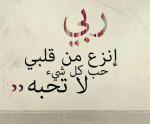 ربي
إنزع من قلبي
حب كل شيء
لا تحبه ,,